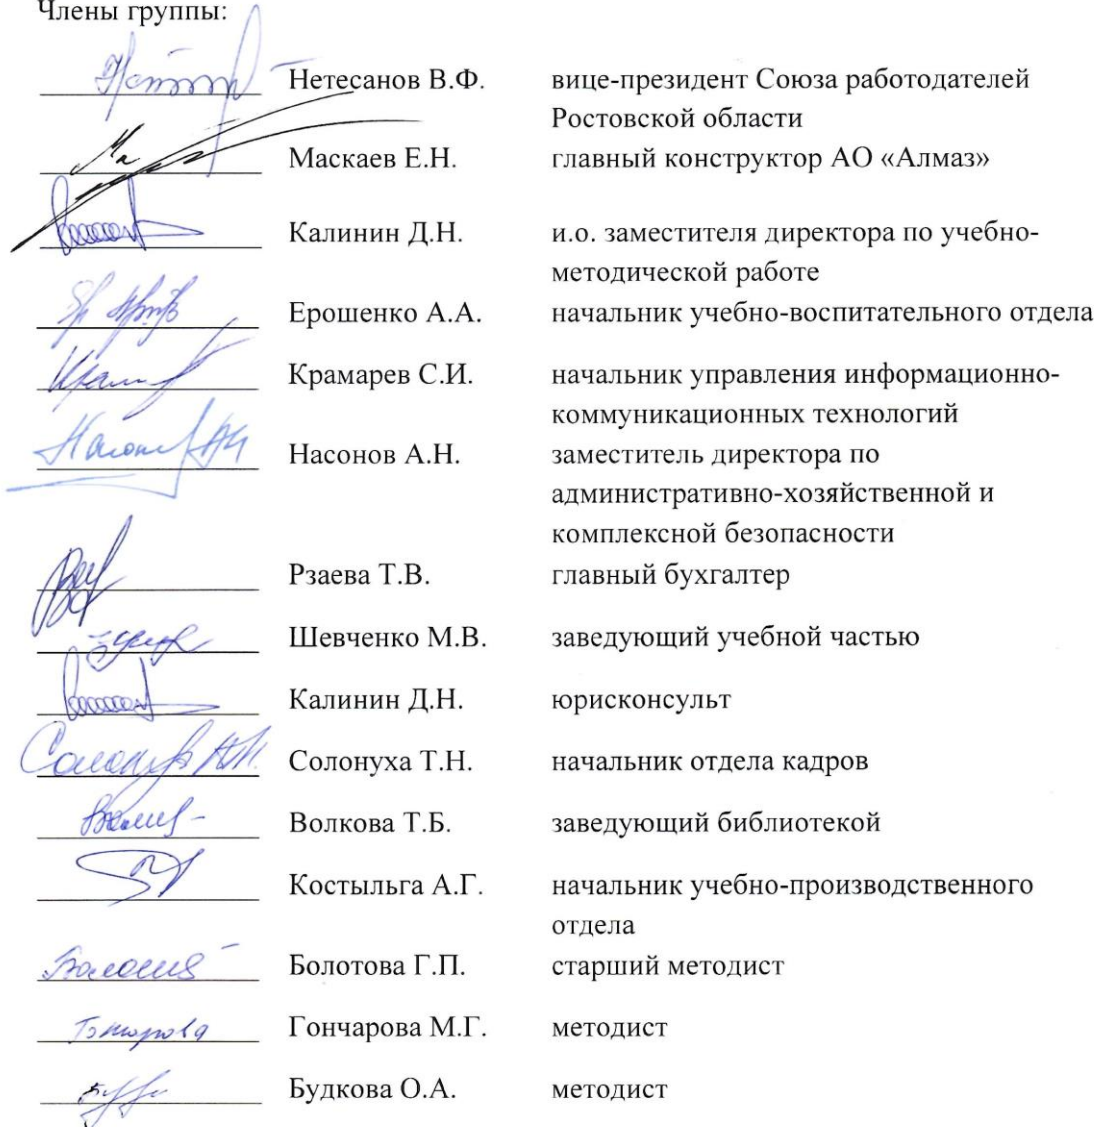 Члены группы:
Нетесанов В.Ф. вице-президент Союза работодателей
Ростовской области
Маскаев Е.Н. главный конструктор АО «Алмаз»
Калинин Д.Н. и.о. заместителя директора по учебно-
методической работе
Ерошенко А.А. начальник учебно-воспитательного отдела
Крамарев С.И. начальник управления информационно-
коммуникационных технологий
Насонов А.Н. заместитель директора по
административно-хозяйственной и
комплексной безопасности
Рзаева Т.В. главный бухгалтер
Шевченко М.В. заведующий учебной частью
Калинин Д.Н. юрисконсульт
Солонуха Т.Н. начальник отдела кадров
Волкова Т.Б. заведующий библиотекой
Костыльга А.Г. начальник учебно-производственного
отдела
Болотова Г.П. старший методист
Гончарова М.Г. методист
Будкова О.А. методист